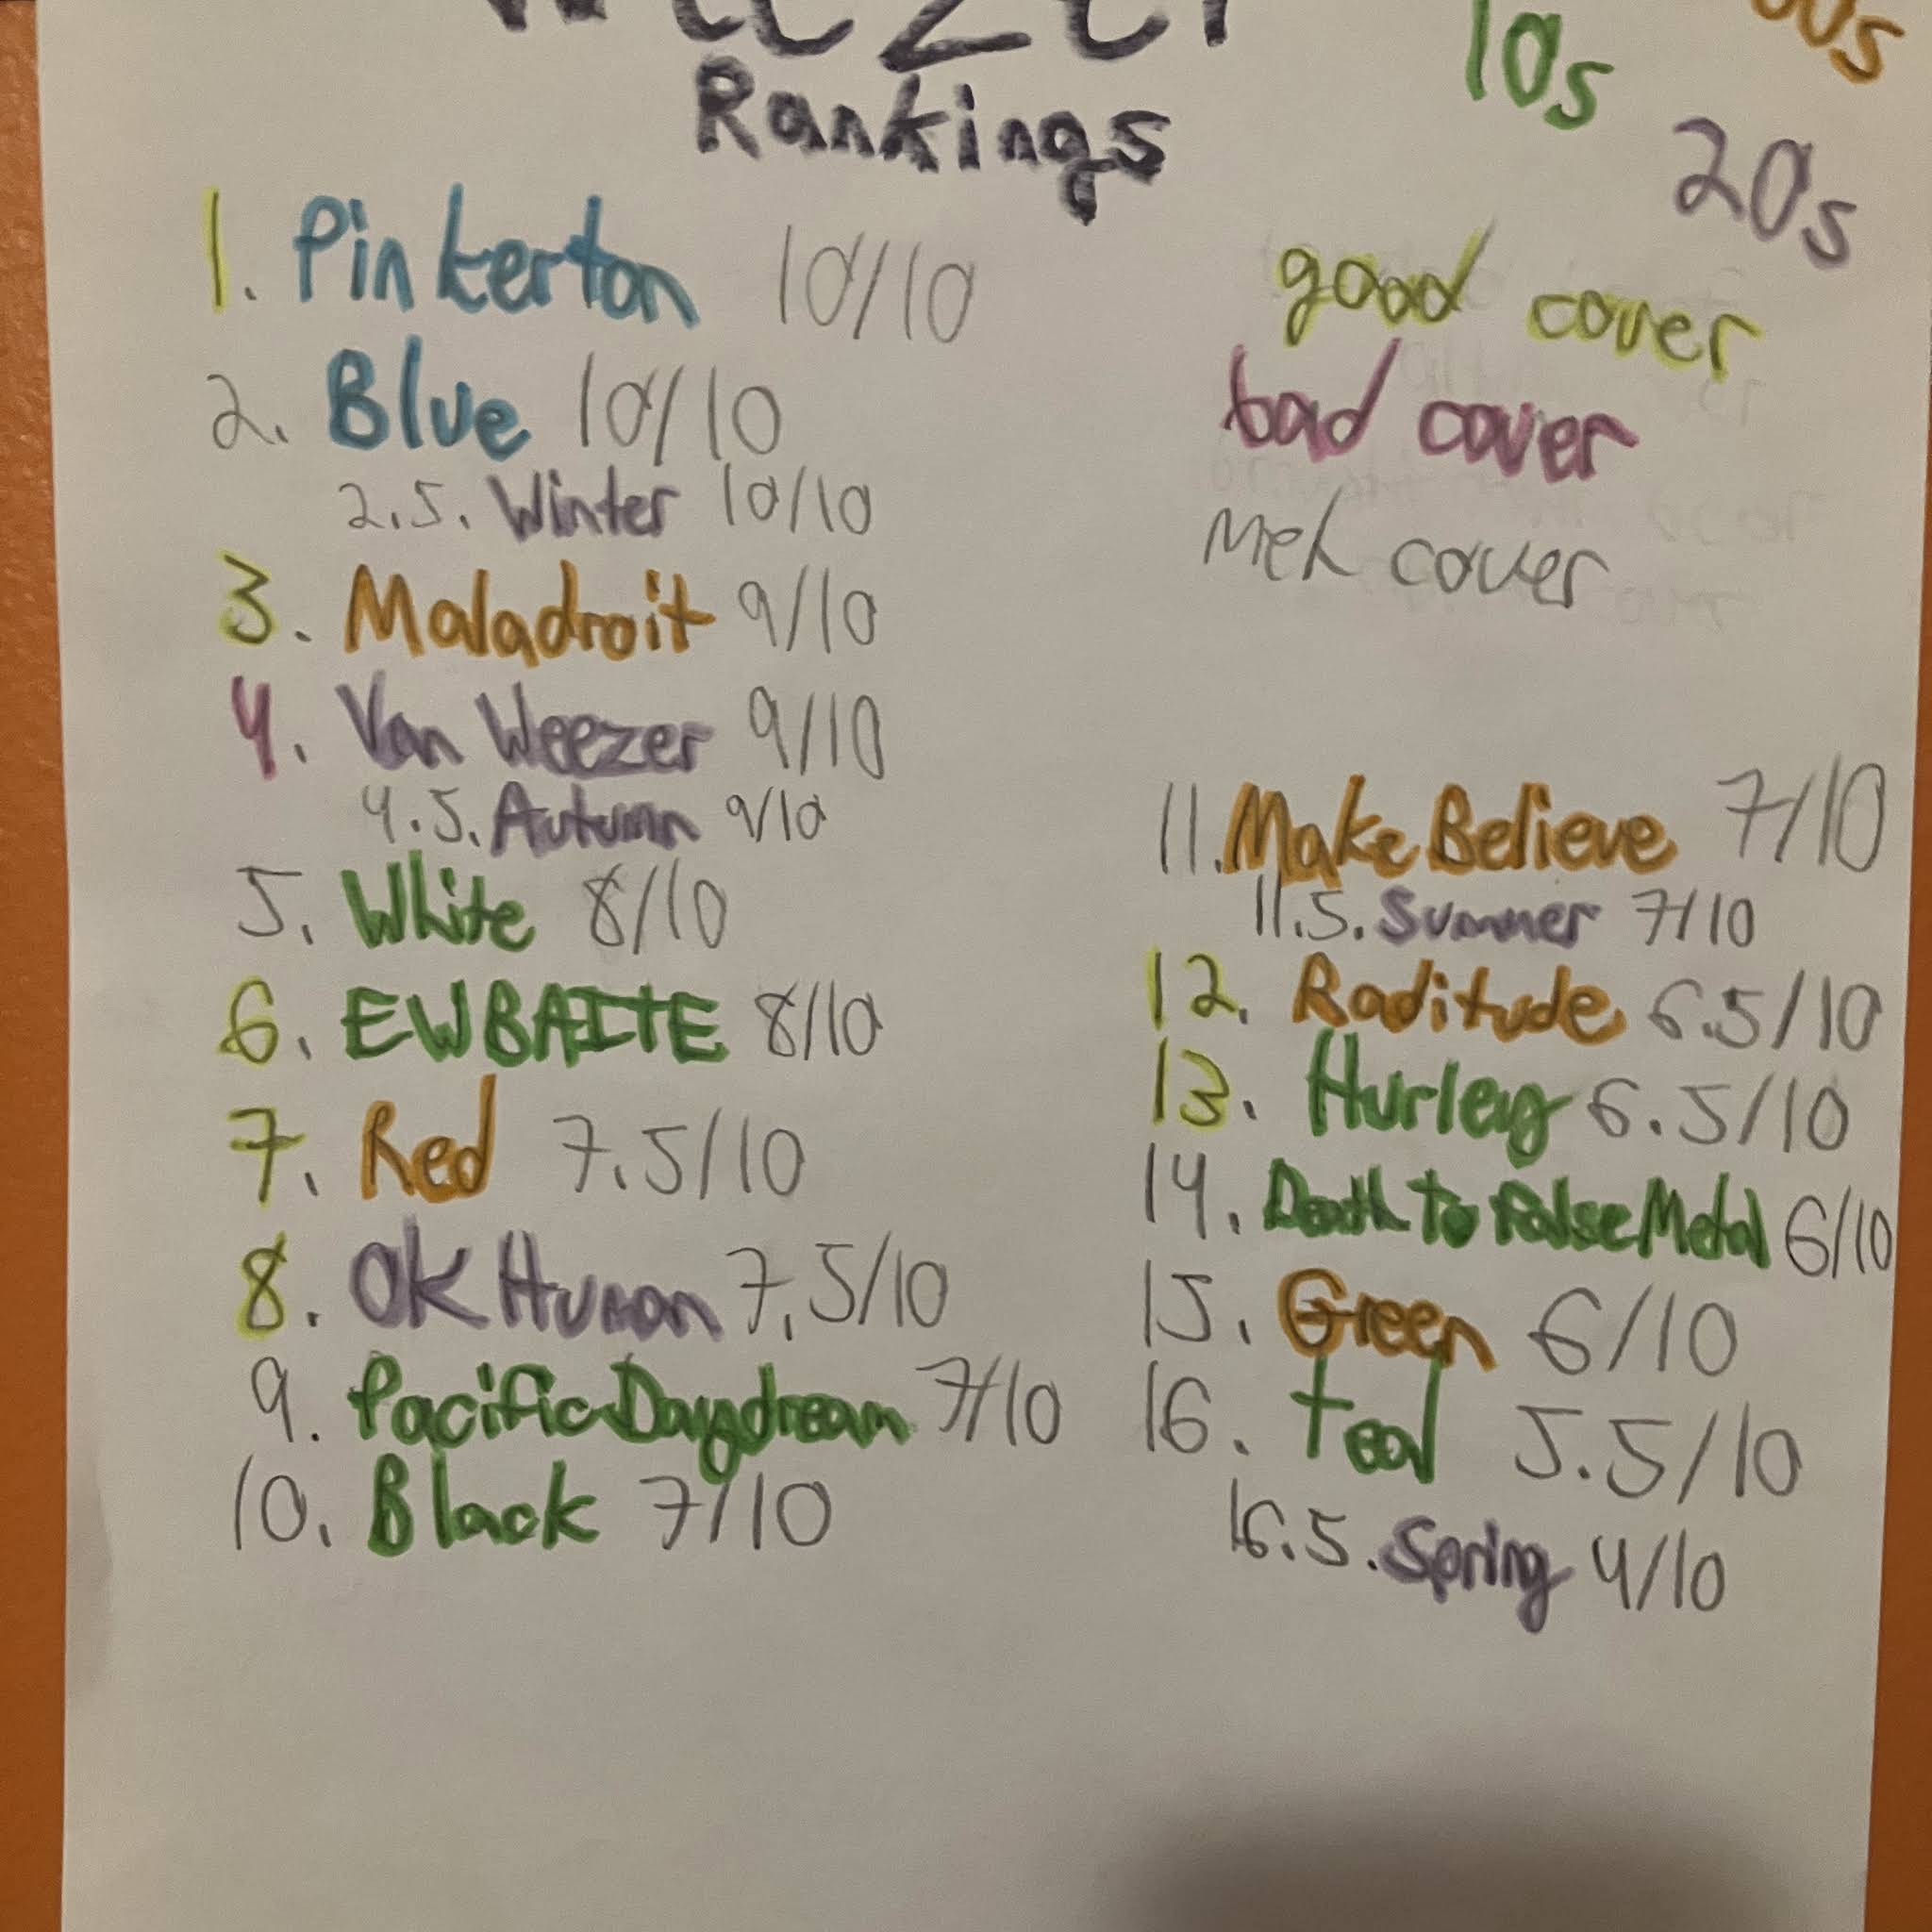 Weezer
Rankings
10s
00s
20s
good cover
bad cover
meh cover
1. Pinkerton 10/10
2. Blue 10/10
2.5. Winter 10/10
3. Maladroit 9/10
4. Van Weezer 9/10
4.5. Autumn 9/10
5. White 8/10
6. EWBAITE 8/10
7. Red 7.5/10
8. OK Human 7.5/10
9. Pacific Daydream 7/10
10. Black 7/10
11. Make Believe 7/10
11.5. Summer 7/10
12. Raditude 6.5/10
13. Hurley 6.5/10
14. Death to False Metal 6/10
15. Green 6/10
16. Teal 5.5/10
16.5. Spring 4/10